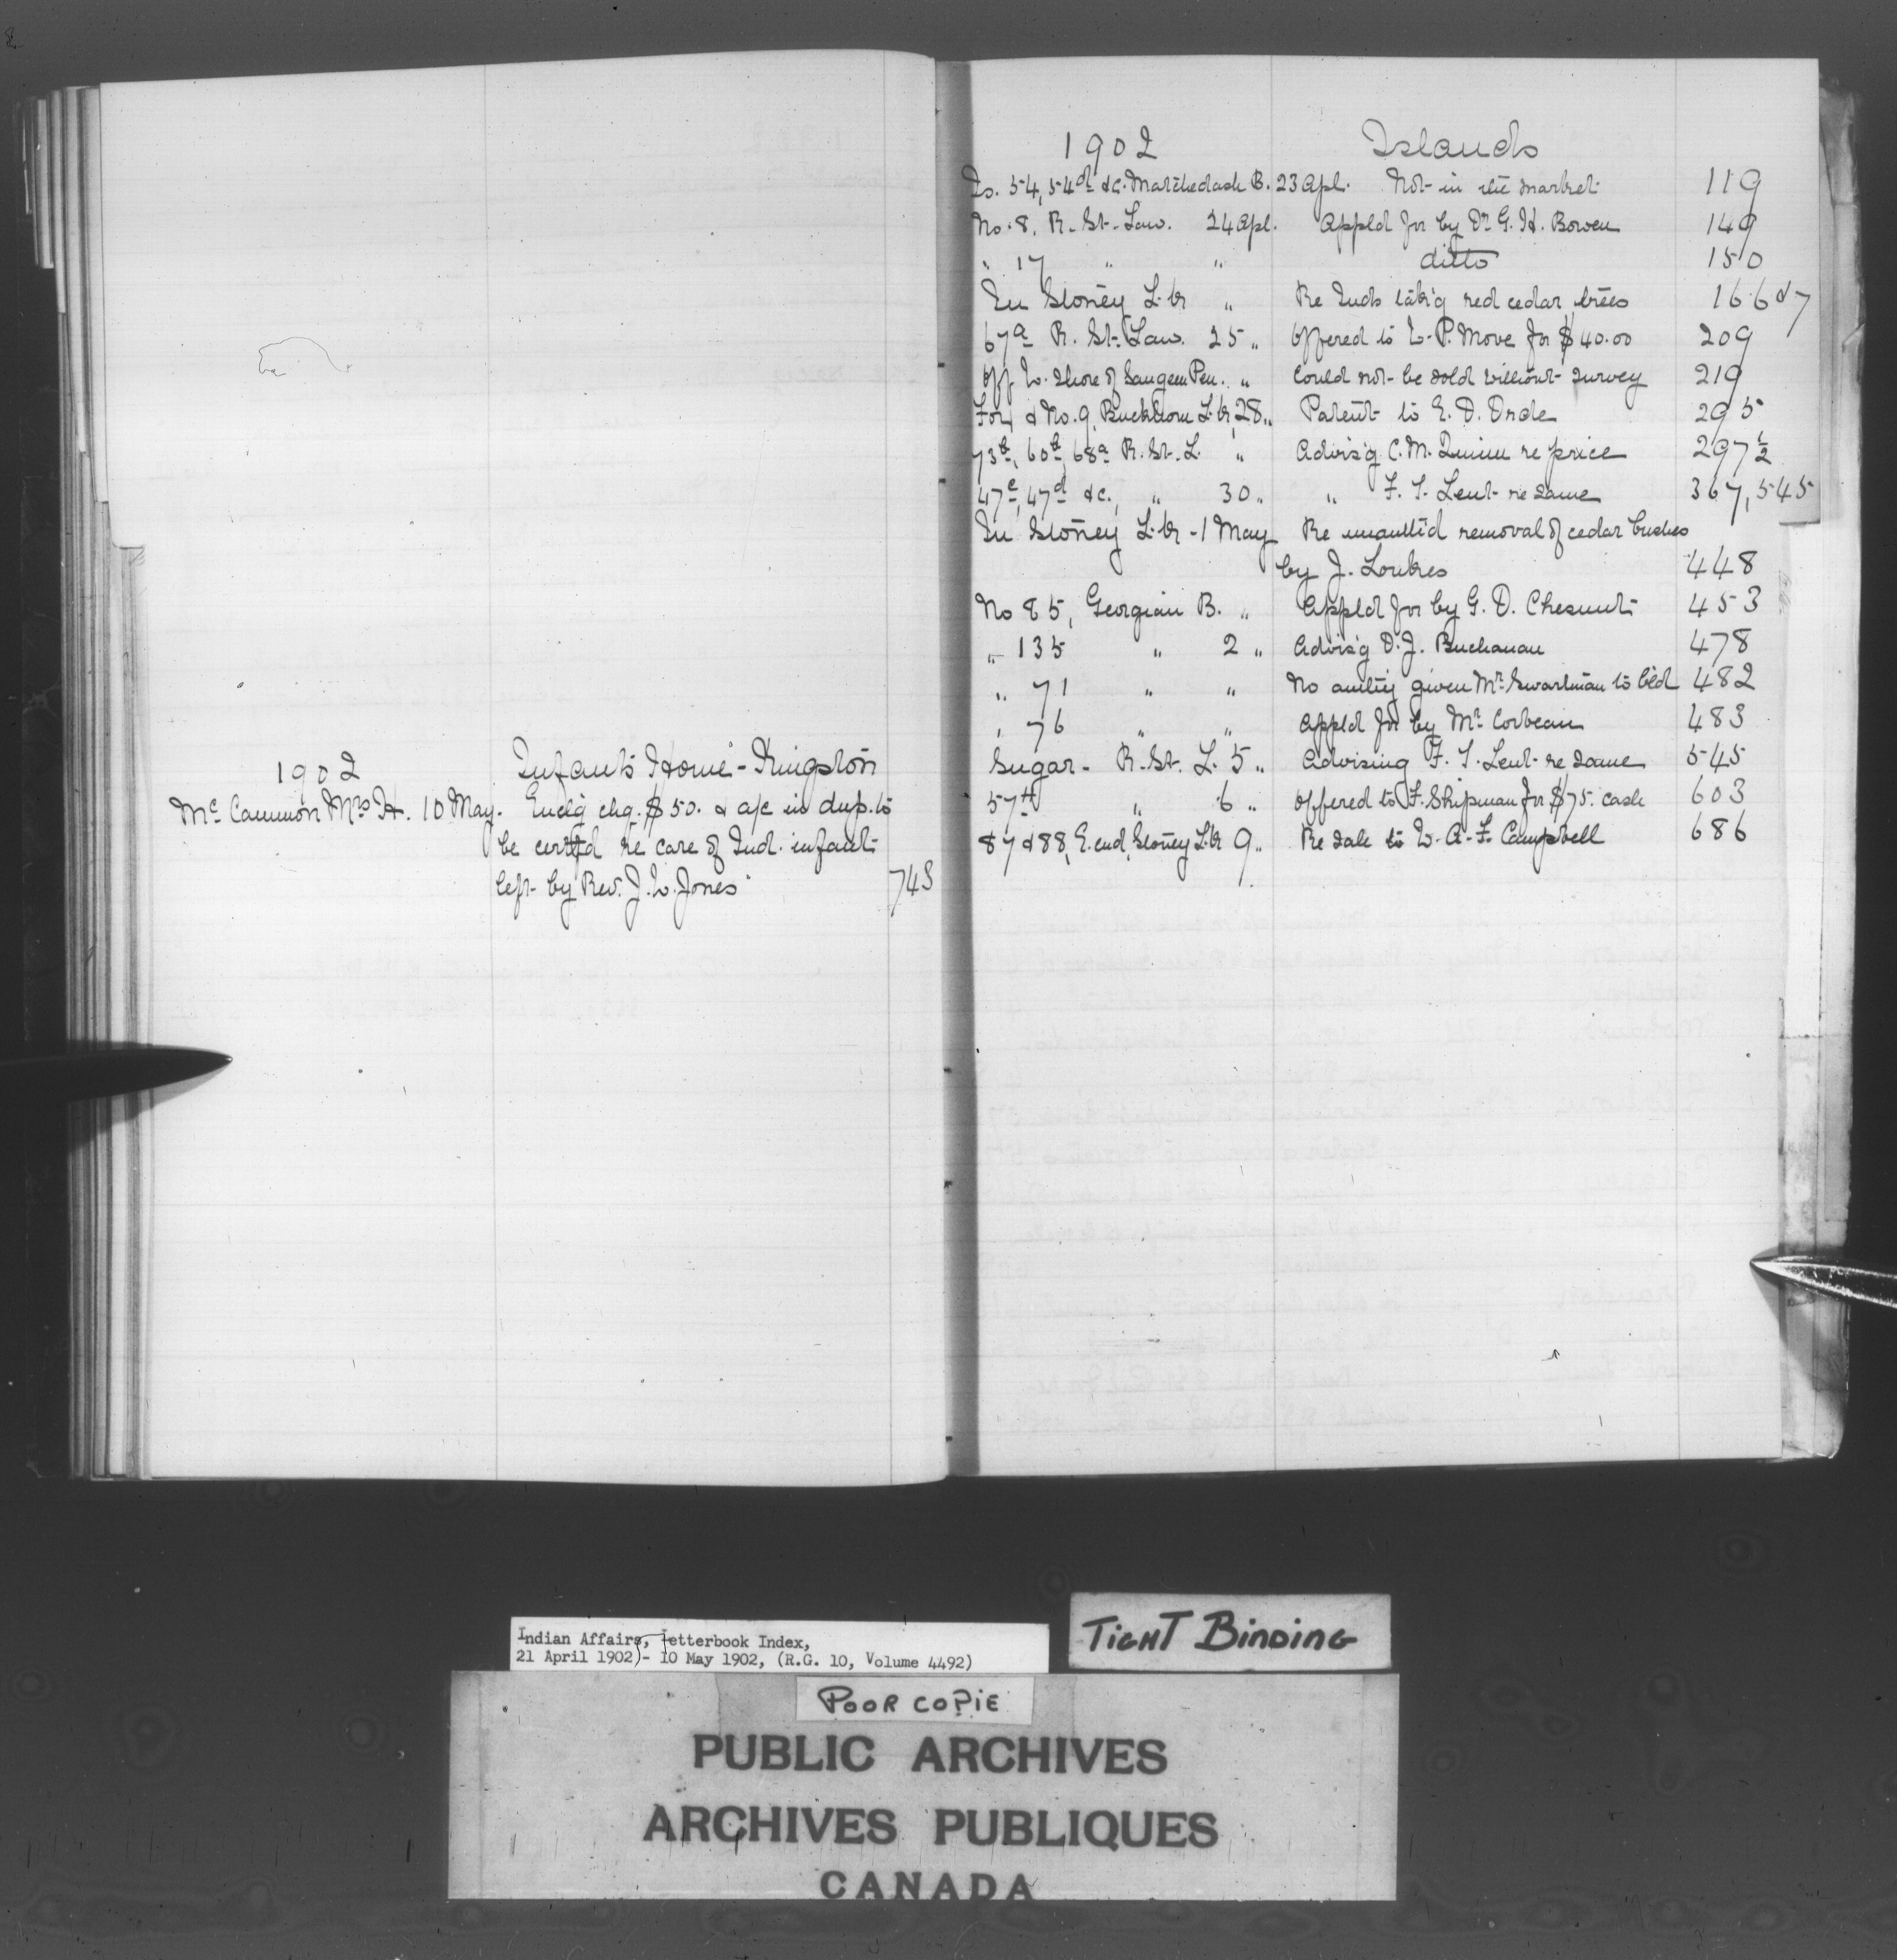 1902 Infants Home - Kingston
Mc Cammon Mrs H. 10 May. Enclg chq. $50. & a/c in dup. to
be certfd re care of Ind. infant
left by Rev. J. L. Jones 743
1902 Islands
Is. 54, 54d &c. Matchedash B. 23 Apl. Not in the market 119
No. 8, R. St. Law. 24 Apl. Appld for by Dr G. H. Bowen 149
" 17 " " ditto 150
In Stoney L.k " Re Inds tak'g red cedar trees 166 & 7
67a R. St. Law. 25 " Offered to L. P. Move for $40.00 209
Off W. Shore of Saugeen Pen. " Could not be sold without survey 219
& No. 9, Buckhorn L.k, 28 " Patent to E. D. Orde 295
73b, 60b, 68a R. St. L. " Advis'g C. M. Quinn re price 297½
47c, 47d &c. " 30 " " F. S. Lent re same 367, 545
In Stoney L.k - 1 May Re unauth'd removal of cedar bushes
by J. Loukes 448
No 85, Georgian B. " Appld for by G. D. Chesnut 453
" 135 " 2 " Advis'g D. J. Buchanan 478
" 71 " " No authy given Mr Swartman to bld 482
" 76 " " Appld for by Mr Corbeau 483
Sugar - R. St. L. 5 " Advising F. S. Lent re same 545
57 " 6 " Offered to F. Shipman for $75. cash 603
87 & 88, E. end, Stoney L.k 9 " Re sale to W. A. F. Campbell 686
TIGHT BINDING
Indian Affairs, Letterbook Index,
21 April 1902)- 10 May 1902, (R.G. 10, Volume 4492)
POOR COPIE
PUBLIC ARCHIVES
ARCHIVES PUBLIQUES
CANADA